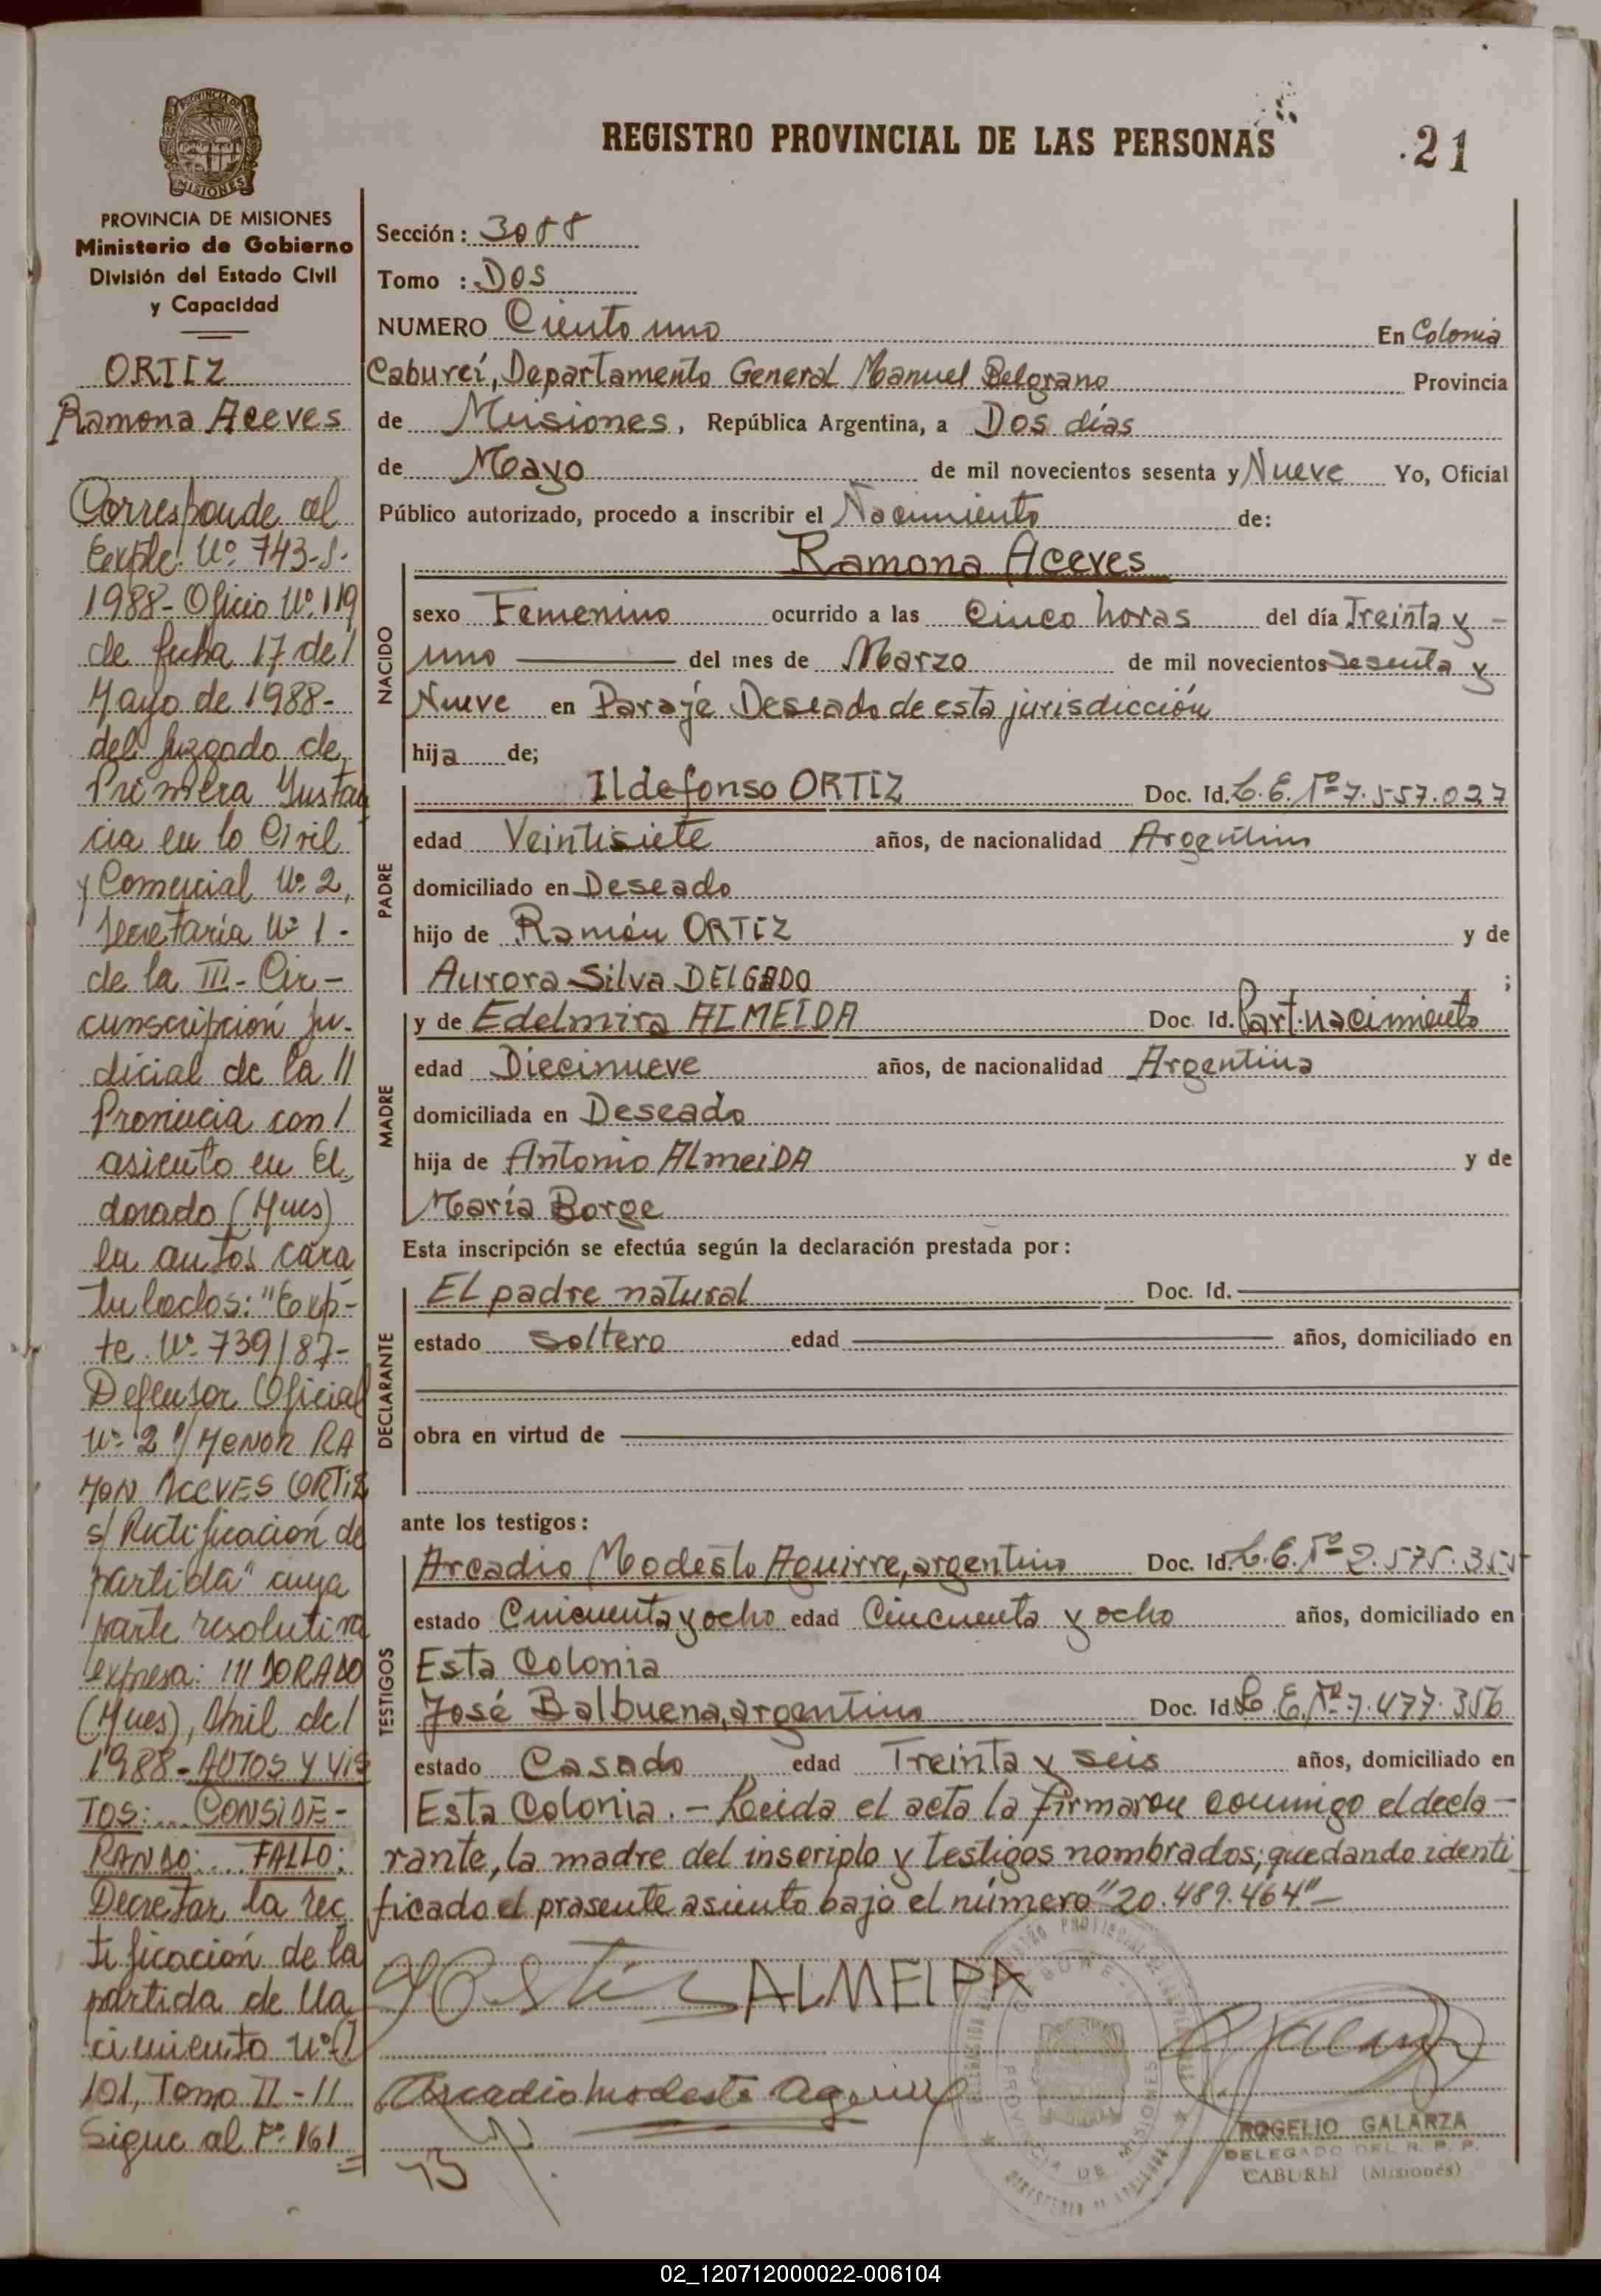 REGISTRO PROVINCIAL DE LAS PERSONAS
.21
PROVINCIA DE MISIONES
PROVINCIA DE MISIONES
Ministerio de Gobierno
División del Estado Civil
y Capacidad
ORTIZ
Ramona Aceves
Corresponde al
Expte. Nº 743-S-
1988-Oficio Nº 119
de fecha 17 de/
Mayo de 1988-
del Juzgado de
Primera Instan
cia en lo Civil
y Comercial Nº 2,
Secretaría Nº 1-
de la III-Cir-
cunscripción Ju-
dicial de la //
Provincia con/
asiento en El
dorado (Mnes)
en autos cara
tulados: "Exp-
te. Nº 739/87-
Defensor Oficial
Nº 2 p/ MENOR RA
MON ACEVES ORTIZ
s/ Rectificación de
partida" cuya
parte resolutiva
expresa: ///DORADO
(Mnes), Abril de/
1988-AUTOS Y VIS
TOS:... CONSIDE-
RANDO:... FALLO:
Decretar la rec
tificación de la
partida de Na
cimiento Nº
101, Tomo II-//
Sigue al Fº 161
Sección: 3088
Tomo : DOS
NUMERO Ciento uno En Colonia
Campureí, Departamento General Manuel Belgrano Provincia
de Misiones, República Argentina, a Dos días
de Mayo de mil novecientos sesenta y Nueve Yo, Oficial
Público autorizado, procedo a inscribir el Nacimiento de:
Ramona Aceves
NACIDO
sexo Femenino ocurrido a las Cinco horas del día Treinta y -
uno del mes de Marzo de mil novecientos sesenta y
Nueve en Paraje Deseado de esta jurisdicción
hija de;
PADRE
Ildefonso ORTIZ Doc. Id. L.E. Nº 7.557.027
edad Veintisiete años, de nacionalidad Argentino
domiciliado en Deseado
hijo de Ramón ORTIZ y de
Aurora Silva DELGADO ;
MADRE
y de Edelmira ALMEIDA Doc. Id. Part. nacimiento
edad Diecinueve años, de nacionalidad Argentina
domiciliada en Deseado
hija de Antonio ALMEIDA y de
María Borge
Esta inscripción se efectúa según la declaración prestada por:
DECLARANTE
El padre natural Doc. Id.
estado soltero edad años, domiciliado en
obra en virtud de
ante los testigos:
TESTIGOS
Arcadio Modesto Aguirre, argentino Doc. Id. L.E. Nº 2.575.355
estado Cincuenta y ocho edad Cincuenta y ocho años, domiciliado en
Esta Colonia
José Balbuena, argentino Doc. Id. L.E. Nº 7.477.356
estado Casado edad Treinta y seis años, domiciliado en
Esta Colonia.- Leída el acta la firmaron conmigo el decla-
rante, la madre del inscripto y testigos nombrados, quedando identi
ficado el presente asiento bajo el número "20.489.464"-
ALMEIDA
Arcadio Modesto Aguirre
PROVINCIA DE MISIONES
ROGELIO GALARZA
DELEGADO DEL R. P. P.
CABUREI (Misiones)
02_120712000022-006104